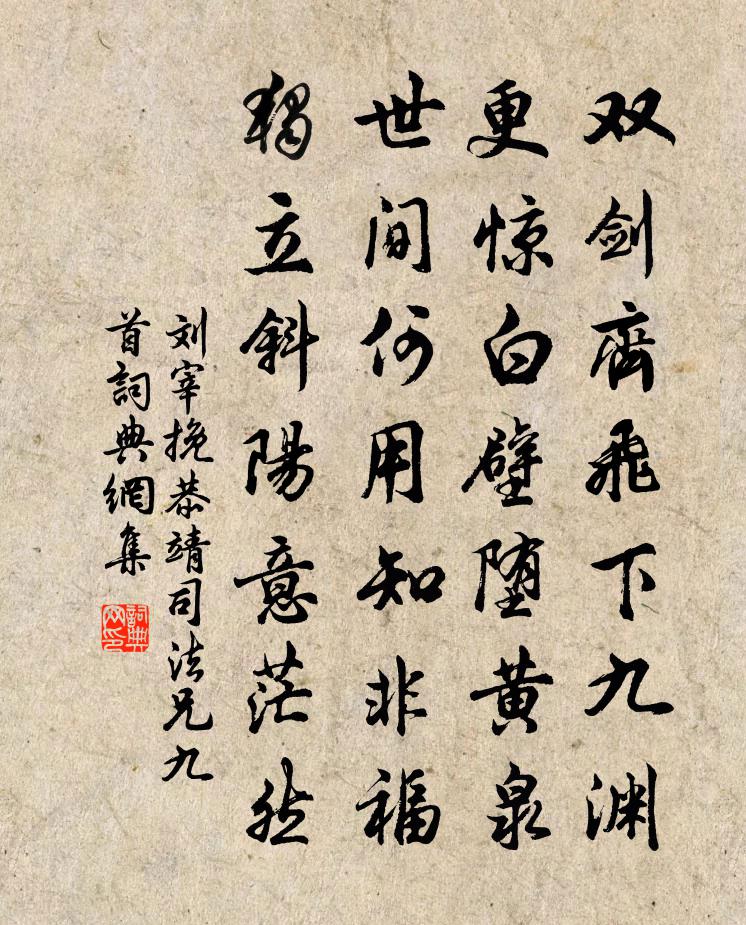 双剑齊飛下九渊
更惊白壁堕黄泉
世间何用知非福
獨立斜陽意茫然
刘宰挽恭靖司法兄九
首詞典網集
詞典网印